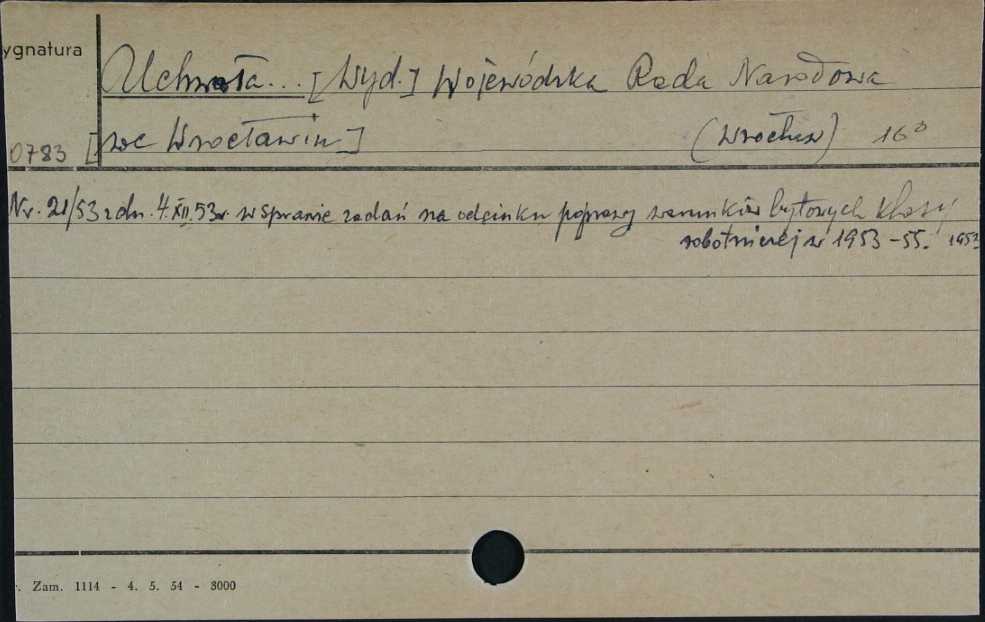 ygnatura
Uchwała... [Wyd.] Wojewódzka Rada Narodowa
0783 [we Wrocławiu] (Wrocław) 16°
Nr. 21/53 z dn. 4.XII.53r. w sprawie zadań na odcinku poprawy warunków bytowych klasy
robotniczej w 1953-55. 1953
. Zam. 1114 - 4. 5. 54 - 3000